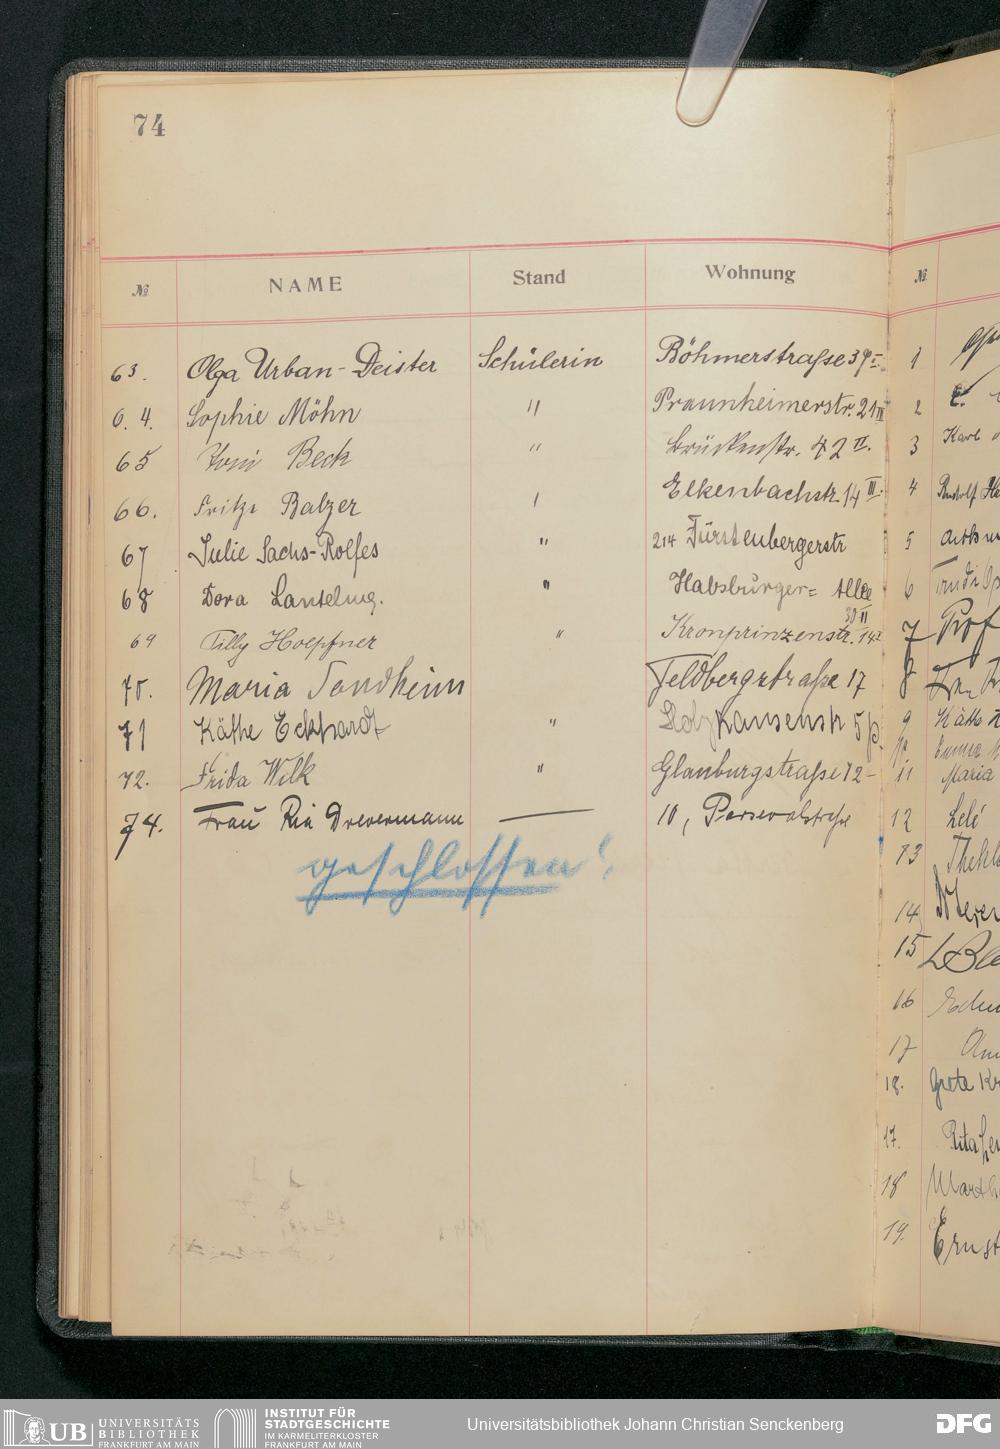 74
№ NAME Stand Wohnung
63. Olga Urban-Deister Schülerin Böhmerstraße
64. Sophie Möhn " Praunheimerstr. 21 III
65 Toni Beck " Brückenstr. 42 II.
66. Balzer " Elkenbachstr. 14 III.
67 Julie Sachs-Rolfes " 214 Fürstenbergerstr
68 Dora " Habsburger= Allee
30 II
69 Tilly Hoepfner " Kronprinzenstr.
70. Maria Sondheim Feldbergstraße 17
71 Käthe Eckhardt " Holzhausenstr 5 p.
72. Frida Wilk " Glauburgstraße 72
74. Frau Ria Drevermann — 10, Parsevalstraße
geschlossen!
№
1
2
3 Karl
4 Rudolf
5
6 Trudi
7 Prof
8
9 Käthe
10 Emma
11 Maria
12
13
14
15
16
17
18. Greta
17. Rita
18 Martha
19. Ernst
UB UNIVERSITÄTS
BIBLIOTHEK
FRANKFURT AM MAIN
INSTITUT FÜR
STADTGESCHICHTE
IM KARMELITERKLOSTER
FRANKFURT AM MAIN
Universitätsbibliothek Johann Christian Senckenberg
DFG